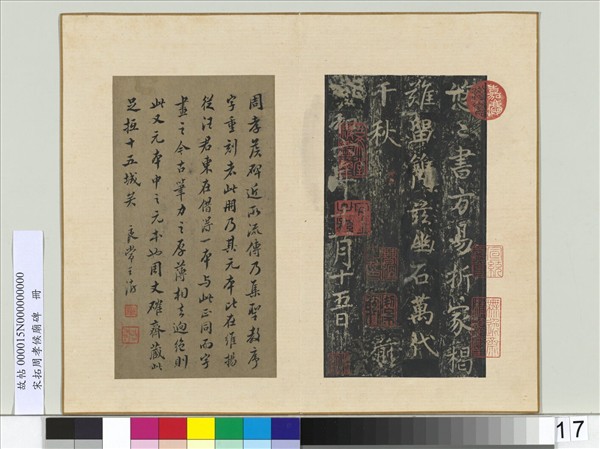 書方易折冢楬
難留茲幽石萬代
千秋
和年十一月十五日
周孝侯碑近所流傳乃集聖教序
字重刻者此冊乃其元本比在維揚
從汪君東在借得一本與此正同而字
畫之今古筆力之厚薄相去迥絕則
此又元本中之元本也周丈確齋藏此
足抵十五城矣 良常王澍
故帖 000015N000000000
宋拓周孝侯廟碑 冊
17